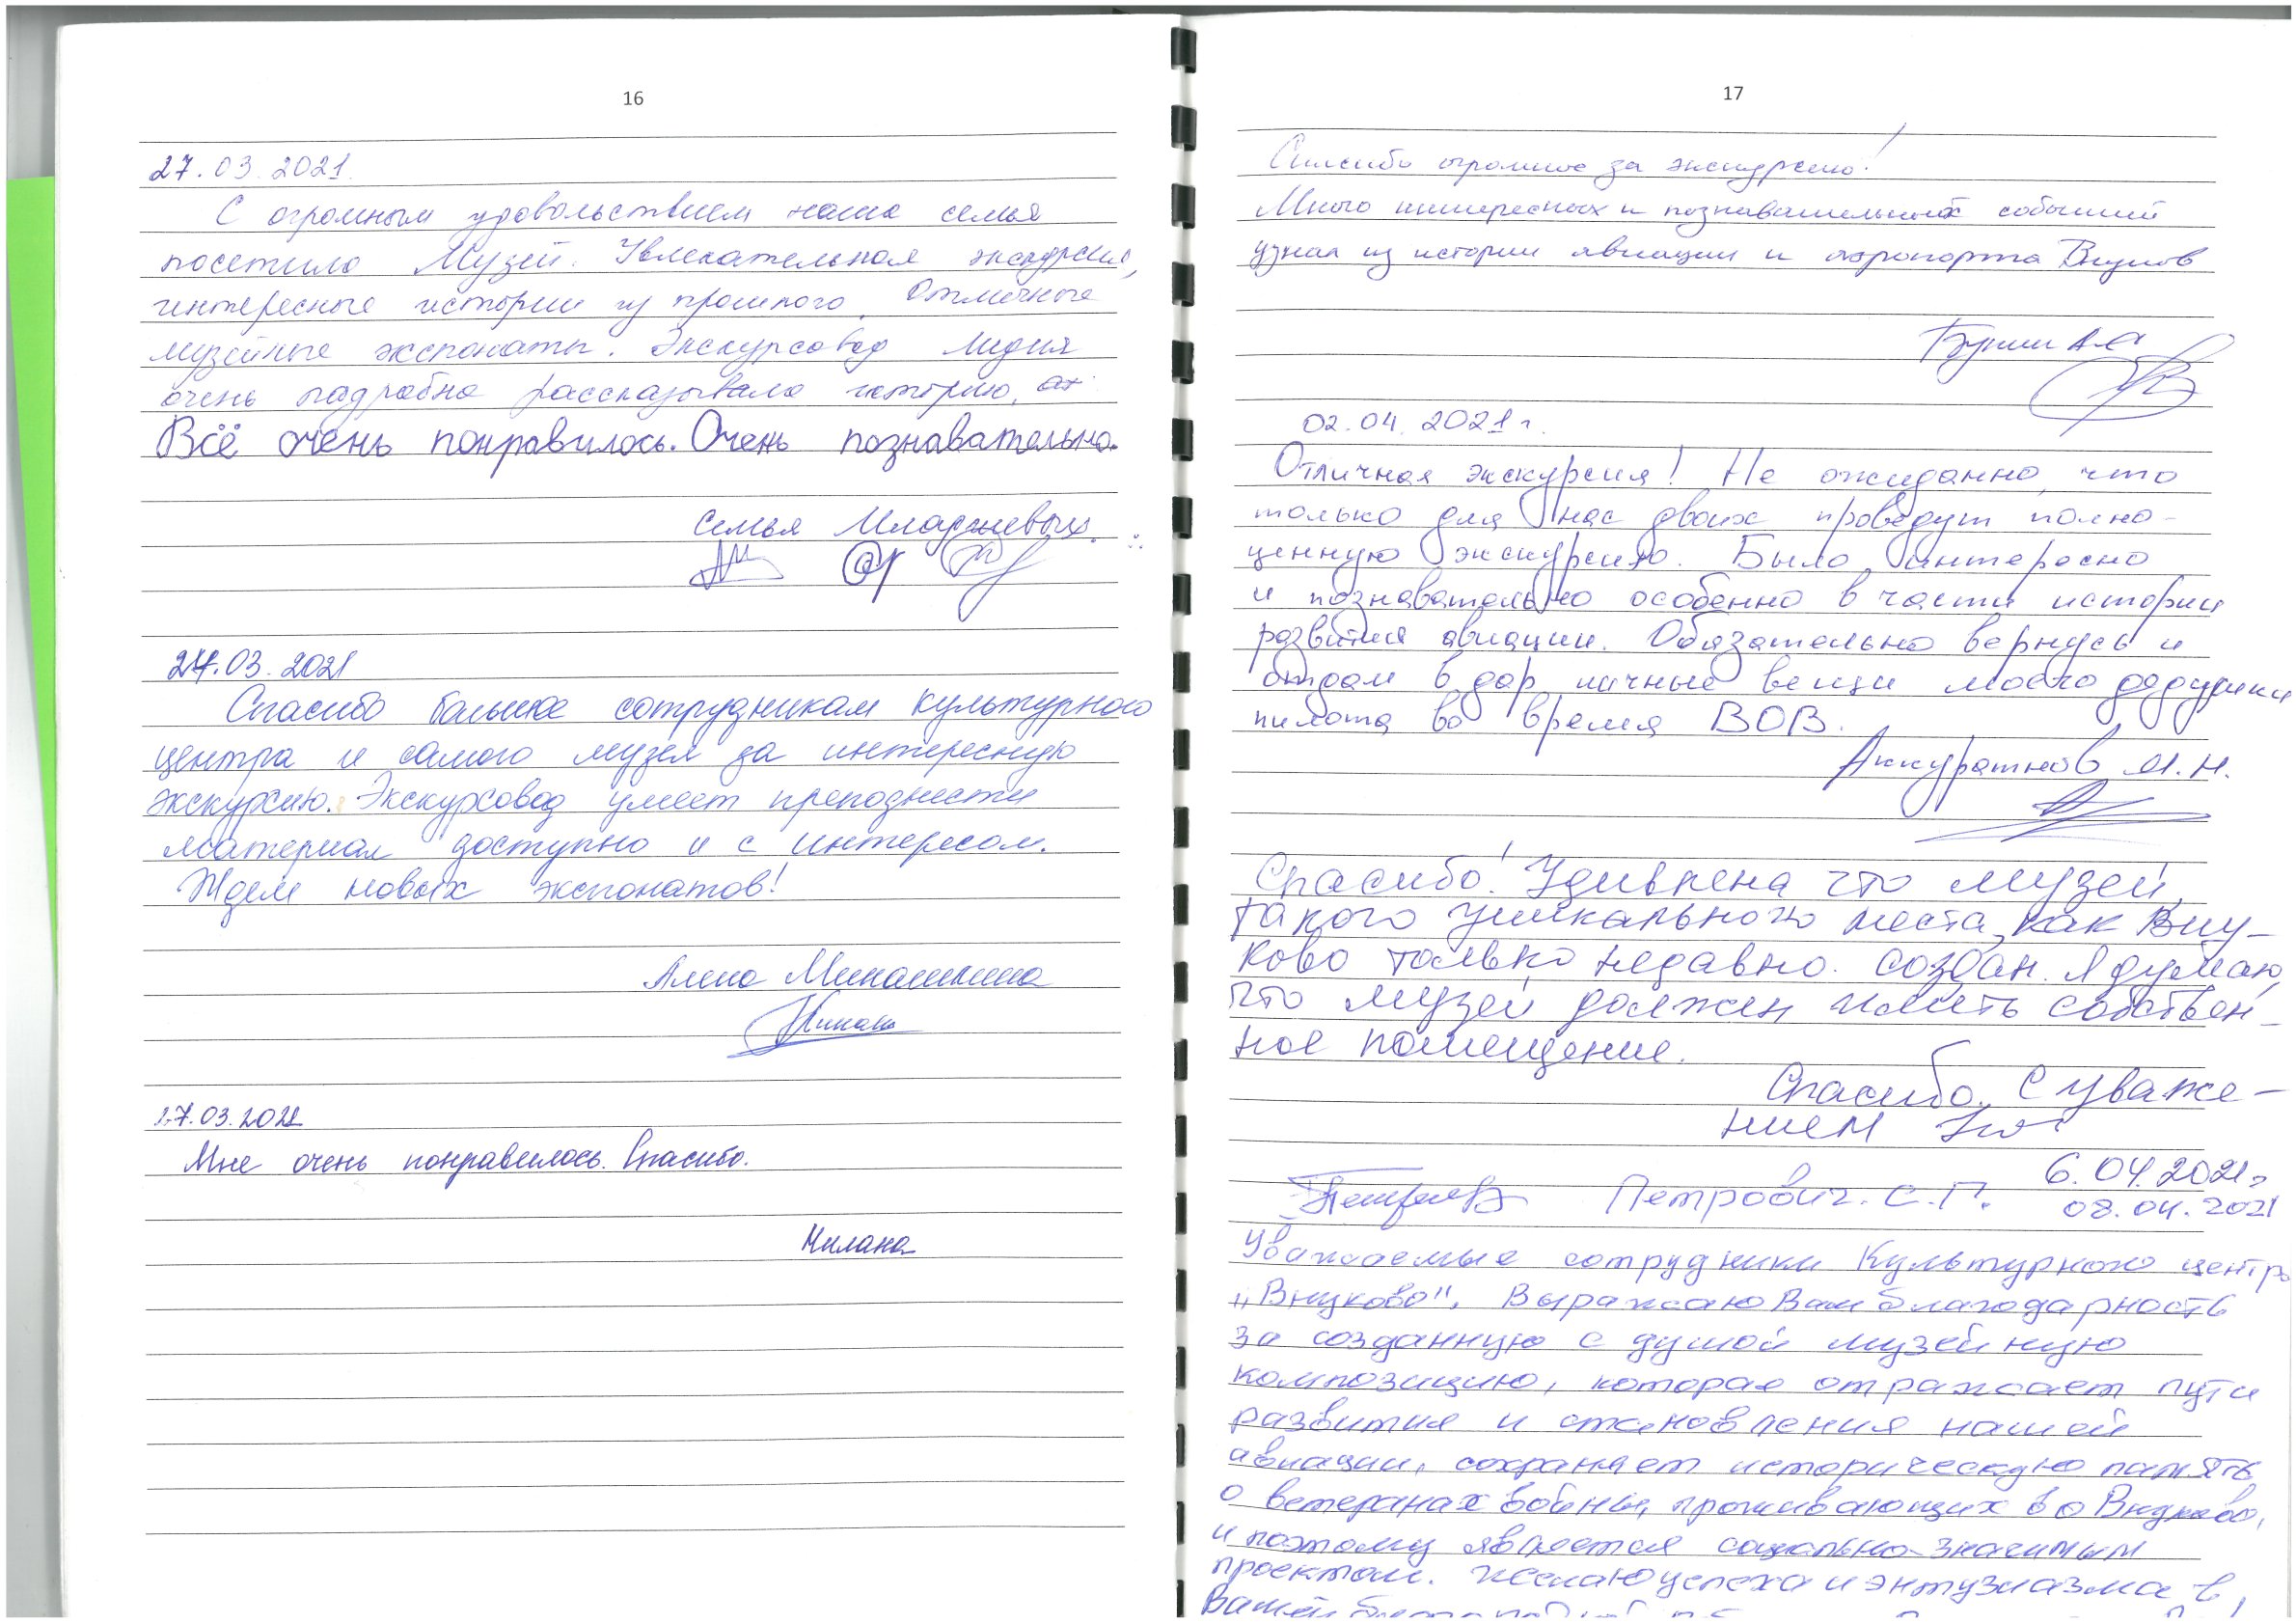 16
27.03.2021.
С огромным удовольствием наша семья
посетила Музей. Увлекательная экскурсия,
интересные истории из прошлого. Отличные
музейные экспонаты. Экскурсовод Лидия
очень подробно рассказывала историю.
Всё очень понравилось. Очень познавательно.
Семья
27.03.2021
Спасибо большое сотрудникам культурного
центра и самого музея за интересную
экскурсию. Экскурсовод умеет преподнести
материал доступно и с интересом.
Ждем новых экспонатов!
Алена Минашкина
27.03.2021
Мне очень понравилось. Спасибо.
Милана
17
Спасибо огромное за экскурсию!
Много интересных и познавательных событий
узнал из истории авиации и аэропорта Внуков
02.04.2021 г.
Отличная экскурсия! Не ожиданно, что
только для нас двоих проведут полно-
ценную экскурсию. Было интересно
и познавательно особенно в части истории
развития авиации. Обязательно вернусь и
отдам в дар личные вещи моего дедушки
пилота во время ВОВ.
Аккуратнов М.Н.
Спасибо! Удивлена что музей,
такого уникального места, как Вну-
ково только недавно. создан. Я думаю,
что музей должен иметь собствен-
ное помещение.
Спасибо. С уваже-
нием
6.04.2021г
Петрович. С.П. 08.04.2021
Уважаемые сотрудники Культурного центра
"Внуково". Выражаю Вам благодарность
за созданную с душой музейную
композицию, которая отражает пути
развития и становления нашей
авиации, сохраняет историческую память
о ветеранах войны, проживающих во Внуково,
и поэтому является социально-значимым
проектом. Желаю успеха и энтузиазма в
Вашей